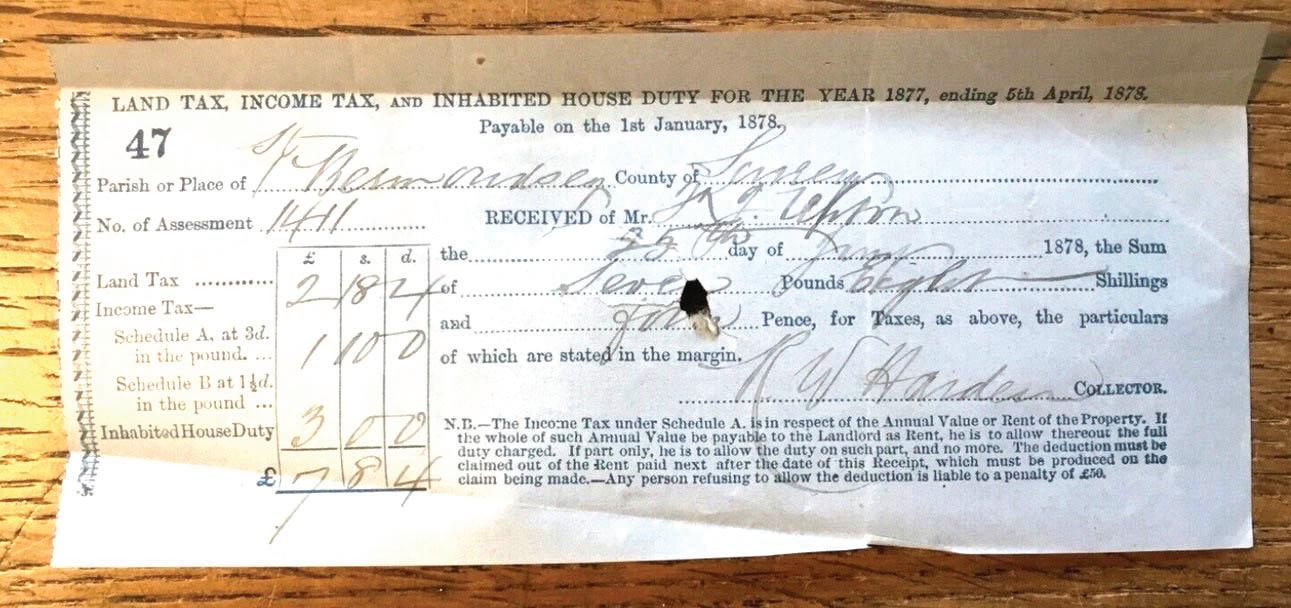 LAND TAX, INCOME TAX, AND INHABITED HOUSE DUTY FOR THE YEAR 1877, ending 5th April, 1878.
47
Payable on the 1st January, 1878.
Parish or Place of Bermondsey County of Surrey
No. of Assessment 1411 RECEIVED of Mr.
£ s. d. the day of 1878, the Sum
Land Tax 2 18 4 of Seven Pounds Eight Shillings
Income Tax—
and Four Pence, for Taxes, as above, the particulars
Schedule A, at 3d.
in the pound. ... 1 10 0 of which are stated in the margin.
Schedule B at 1½d.
in the pound ...
R W Harden COLLECTOR.
Inhabited House Duty 3 0 0
£ 7 8 4
N.B.—The Income Tax under Schedule A. is in respect of the Annual Value or Rent of the Property. If
the whole of such Annual Value be payable to the Landlord as Rent, he is to allow thereout the full
duty charged. If part only, he is to allow the duty on such part, and no more. The deduction must be
claimed out of the Rent paid next after the date of this Receipt, which must be produced on the
claim being made.—Any person refusing to allow the deduction is liable to a penalty of £50.